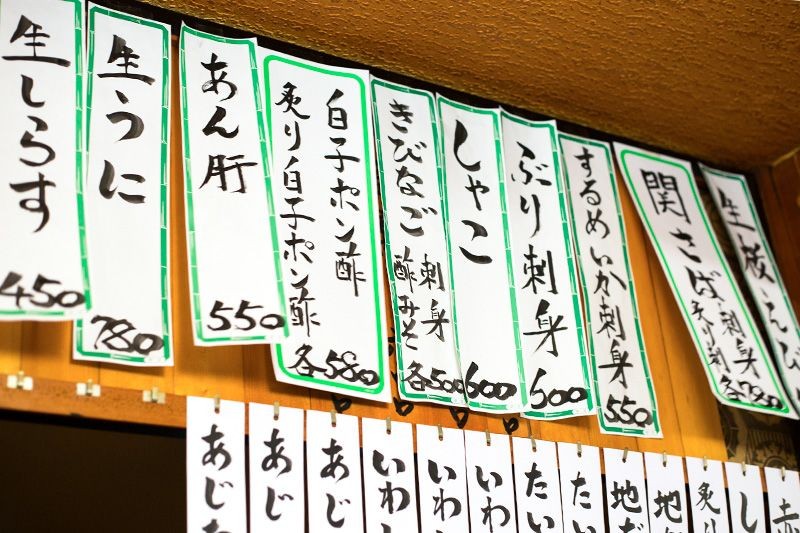 生しらす
450
生うに
780
あん肝
550
白子ポン酢
炙り白子ポン酢
各580
きびなご刺身
酢みそ
各500
しゃこ
600
ぶり刺身
600
するめいか刺身
550
関さば刺身
炙り刺
各780
あじ
あじ
あじ
いわし
いわし
いわ
たい
たい
地だ
地
炙り
し
赤